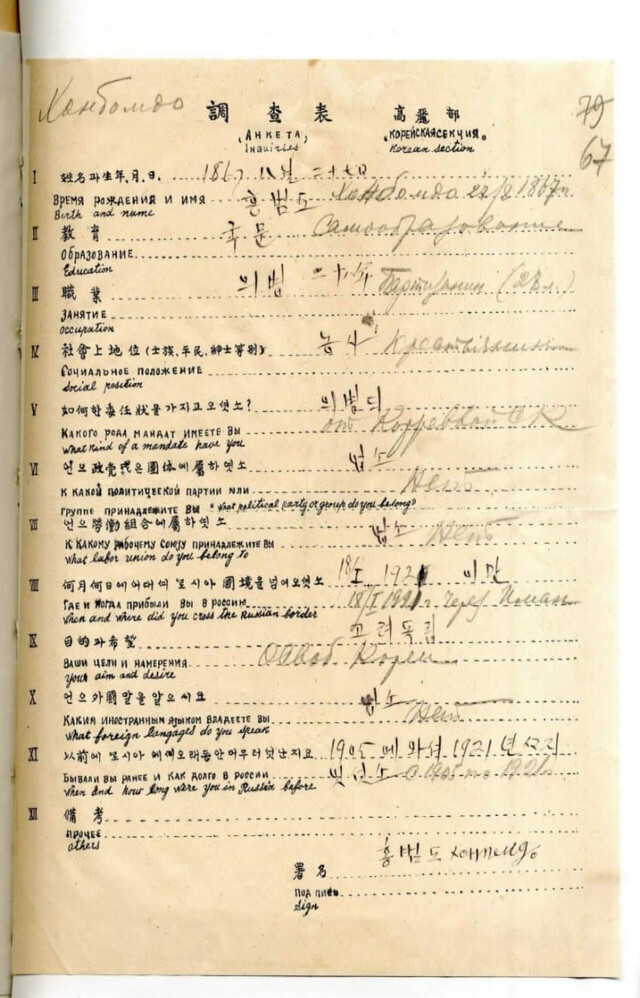 Хонбомдо
79
67
調查表 高麗部
(АНКЕТА) (КОРЕЙСКАЯ СЕКЦИЯ)
Inquiries Korean section
I 姓名과生年,月,日. 1867 八月 二十七日
ВРЕМЯ РОЖДЕНИЯ И ИМЯ 홍범도 Хонбомдо 27/8 1867г.
Birth and name
II 教育 국문 Самообразование
ОБРАЗОВАНИЕ
Education
III 職業 의병 二十年 Партизанин
ЗАНЯТИЕ
occupation
IV 社會上地位(士族、平民、紳士等別) 농사
СОЦИАЛЬНОЕ ПОЛОЖЕНИЕ
social position
V 如何한委任狀을가지고오엿소?
КАКОГО РОДА МАНДАТ ИМЕЕТЕ ВЫ от
what kind of a mandate have you
VI 언으政党或은團体에屬하엿소 업소
К КАКОЙ ПОЛИТИЧЕСКОЙ ПАРТИИ ИЛИ Нет
ГРУППЕ ПРИНАДЛЕЖИТЕ ВЫ "what political party or group do you belong?
VII 언으勞働組合에屬하엿소 업소
К КАКОМУ РАБОЧЕМУ СОЮЗУ ПРИНАДЛЕЖИТЕ ВЫ Нет
what labor union do you belong to
VIII 何月何日에어대여 로시아 國境을넘어오엿소 18/I 1921 이만
ГДЕ И КОГДА ПРИБЫЛИ ВЫ В РОССИЮ 18/I 1921 г. через Иман
when and where did you cross the Russian border
IX 目的과希望 고려독립
ВАШИ ЦЕЛИ И НАМЕРЕНИЯ Освоб Кореи
your aim and desire
X 언으外國말을알으시요 업소
КАКИМ ИНОСТРАННЫМ ЯЗЫКОМ ВЛАДЕЕТЕ ВЫ Нет
what foreign langages do you speak
XI 以前에 로시아
БЫВАЛИ ВЫ РАНЕЕ И КАК ДОЛГО В РОССИИ
when and how long were you in Russia before
XII 備考
ПРОЧЕЕ
others
홍범도
署名
ПОДПИСЬ
sign